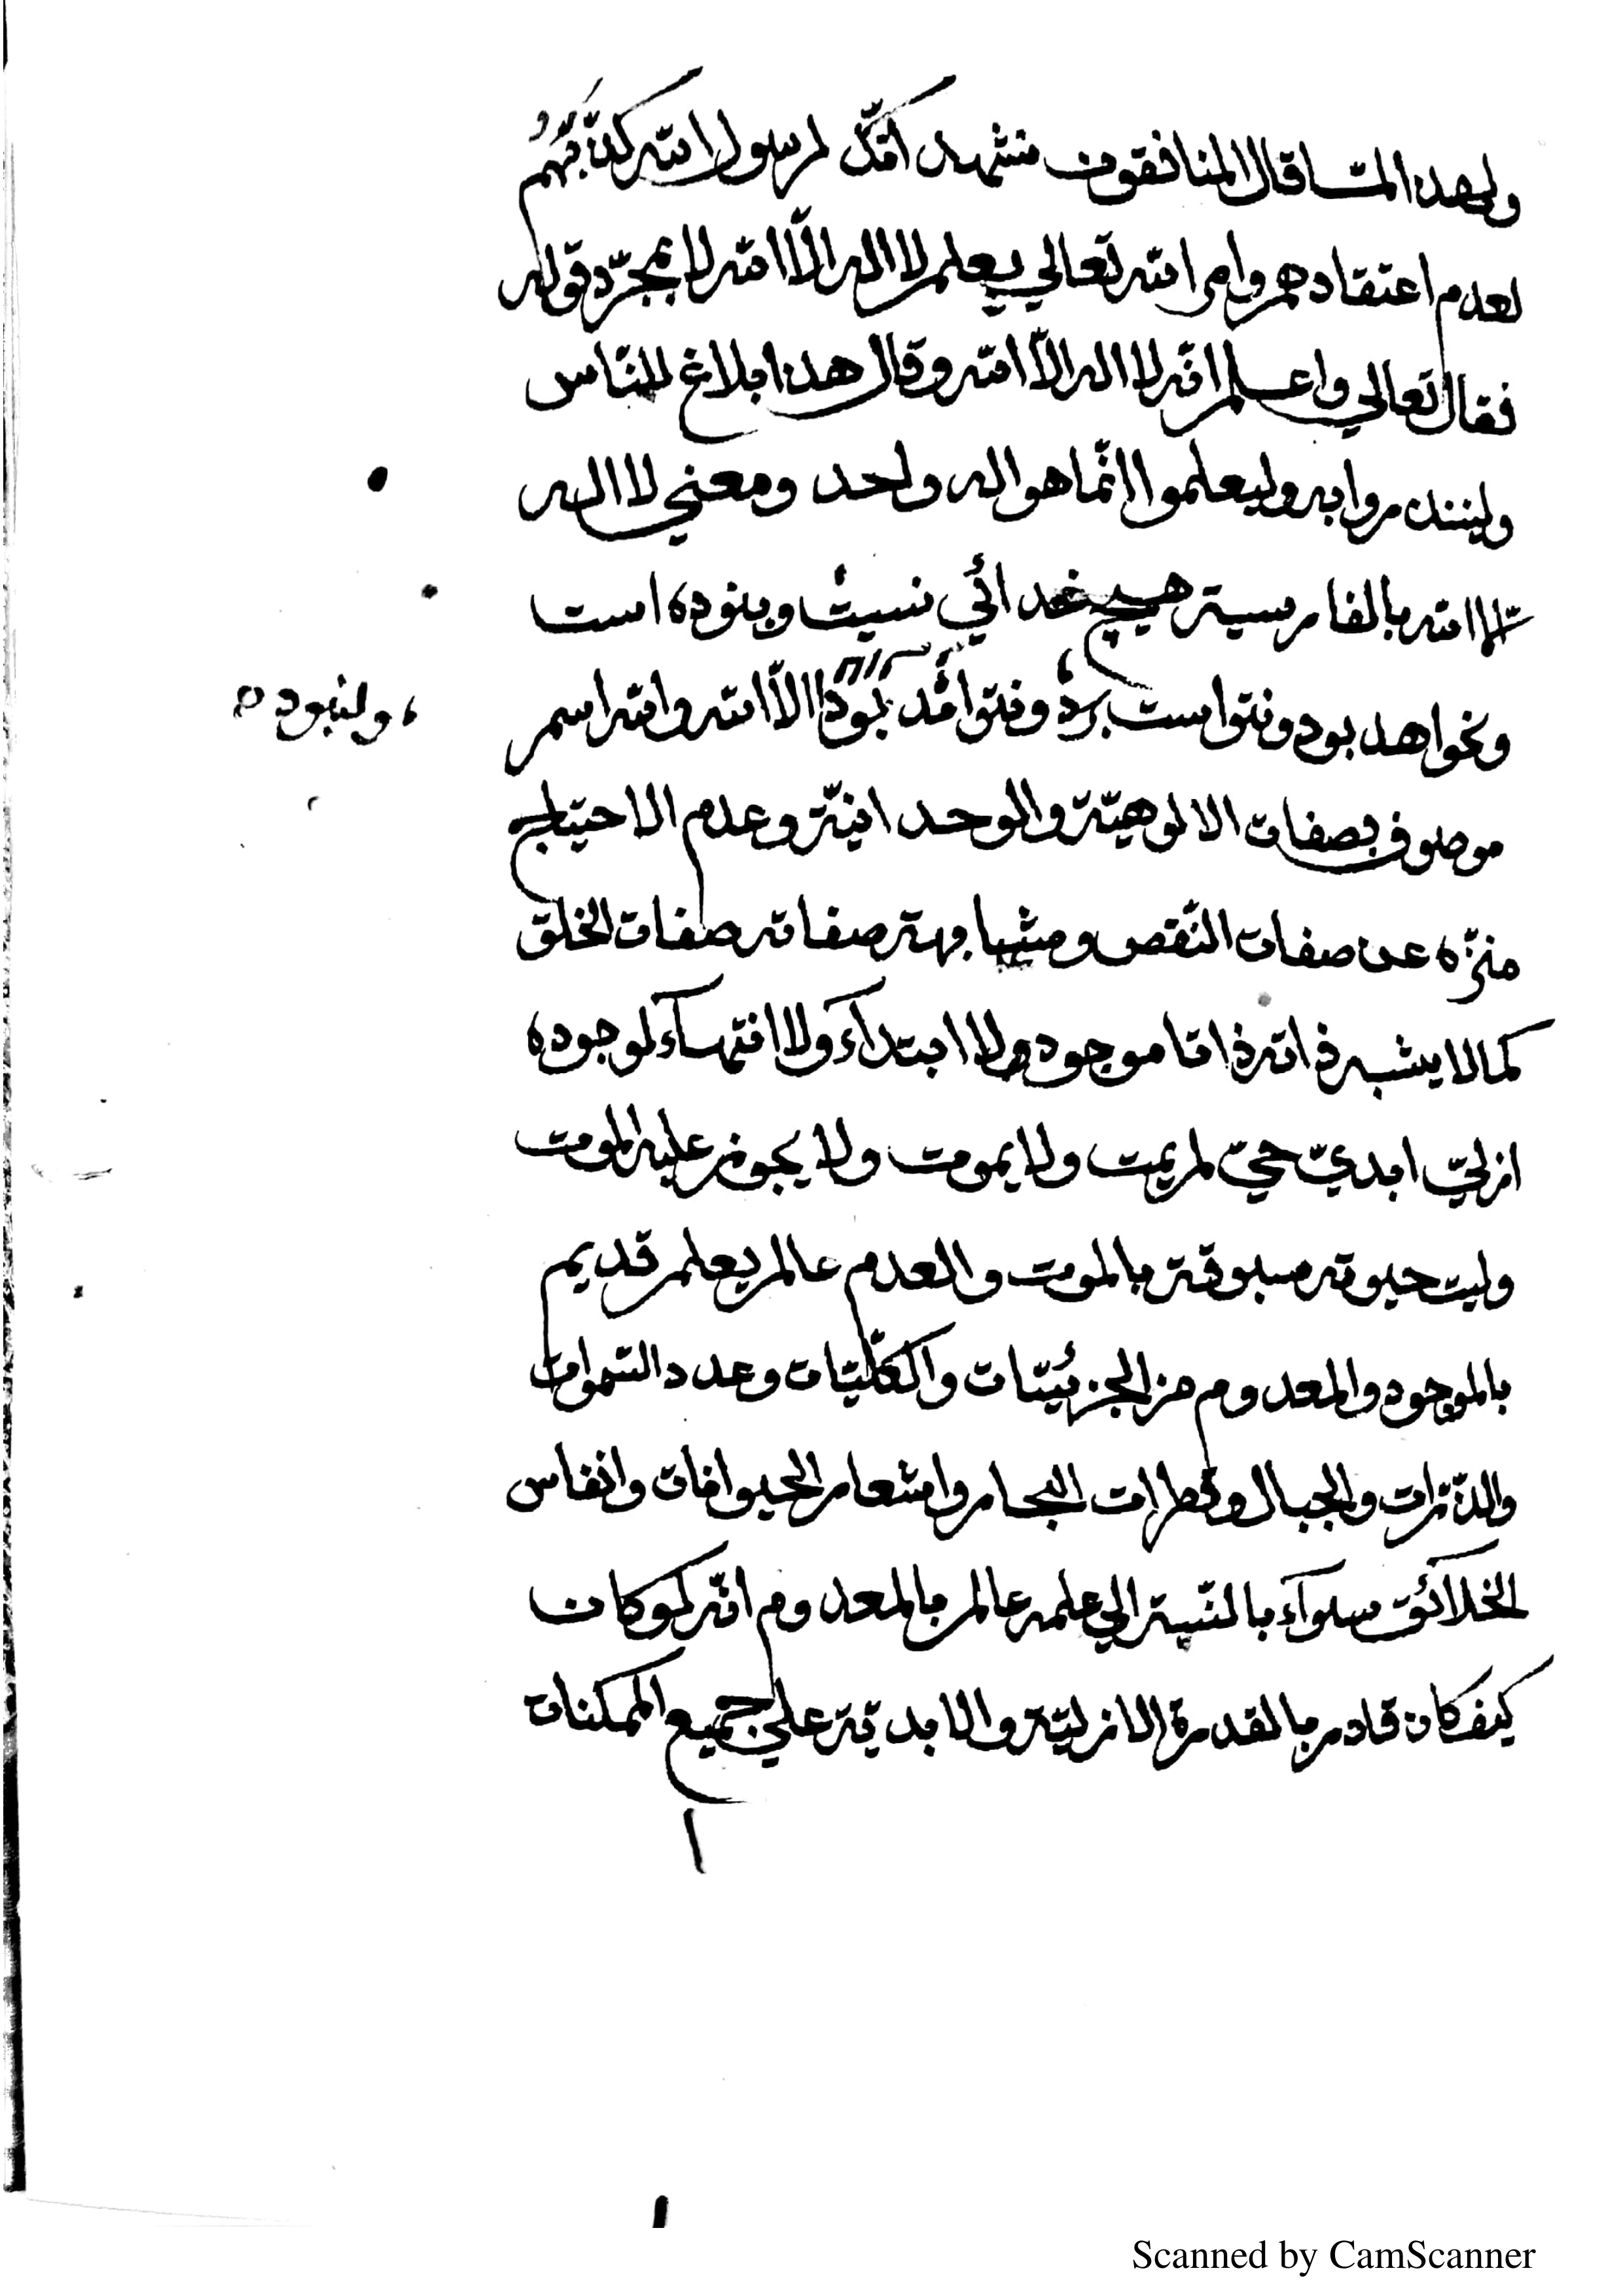 ولهذا لمّا قال المنافقون نشهد انّك لرسول الله كذّبهم
لعدم اعتقادهم وامر الله تعالي بعلم لا اله الّا الله لا بمجرّد قوله
فقال تعالي واعلم انّه لا اله الّا الله وقال هذا بلاغ للنّاس
ولينذروا به وليعلموا انّما هو اله واحد ومعني لا اله
الّا الله بالفارسية هيچ خدائي نيست ونبوده است
ونخواهد بود ونتواست بوده ونتوانّد بود الّا الله والله اسم
، ولنبوده
موصوف بصفات الالوهيّة والوحدانيّة وعدم الاحتياج
منزّه عن صفات النّقص ومشابهة صفاته صفات الخلق
كما لا يشبه ذاته ذاتا موجود ولا ابتدآء ولا انتهآء لوجوده
ازليّ ابديّ حيّ لم يمت ولا يموت ولا يجوز عليه الموت
وليت حيوته مسبوقة بالموت والعدم عالم بعلم قديم
بالموجود والمعدوم من الجزئيّات والكلّيّات وعدد السّموات
والذّرّات والجبال وقطرات البحار واشعار الحيوانات وانفاس
الخلائق سوآء بالنّسبة الي علمه عالم بالمعدوم انّه لو كان
كيف كان قادر بالقدرة الازليّة والابديّة علي جميع الممكنات
Scanned by CamScanner